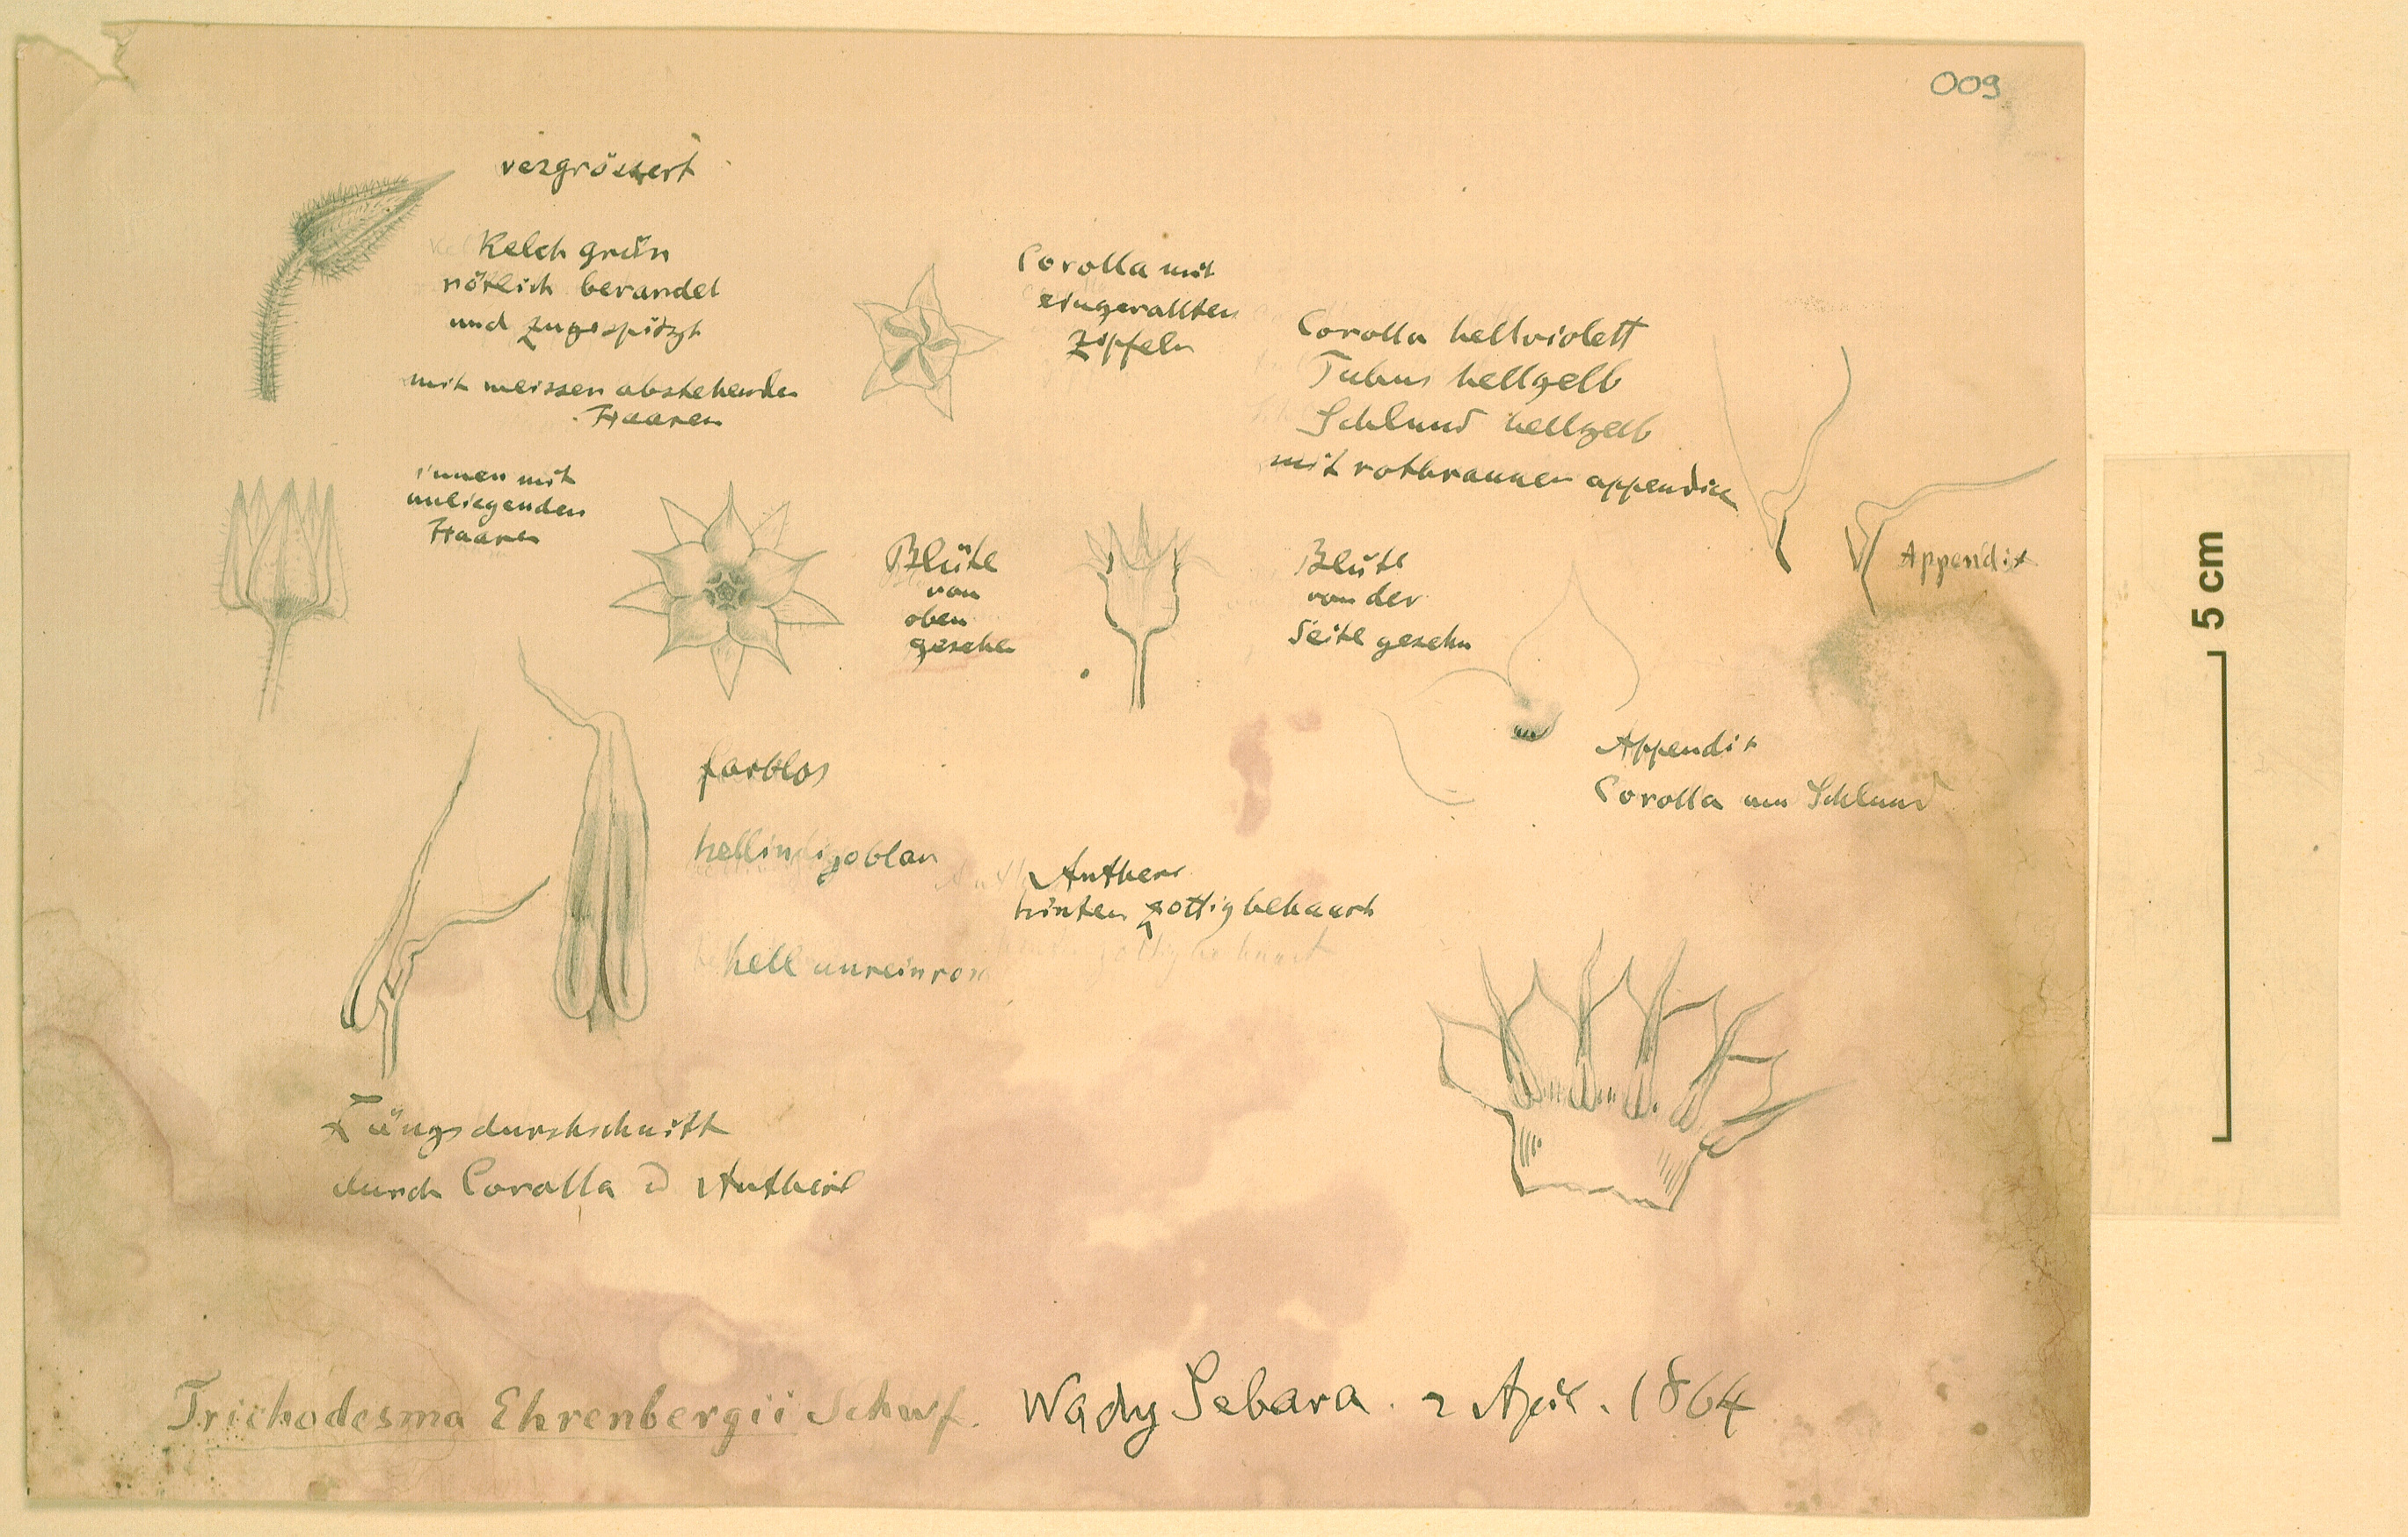 009
vergrössert
Kelch grün
rötlich berandet
und zugespitzt
mit weissen abstehenden
Haaren
Corolla mit
eingerollten
Zipfeln
Corolla hellviolett
Tubus hellgelb
Schlund hellgelb
mit rotbraunen appendix
innen mit
anliegenden
Haaren
Blüte
von
oben
gesehen
Blüte
von der
Seite gesehn
Appendix
5 cm
Appendix
Corolla am Schlund
farblos
hellindigoblau
Anthere
hinten zottig behaart
hell unreinrosa
Längsdurchschnitt
durch Corolla u Anthere
Trichodesma Ehrenbergii Schwf. Wady Sebara. 2 April. 1864